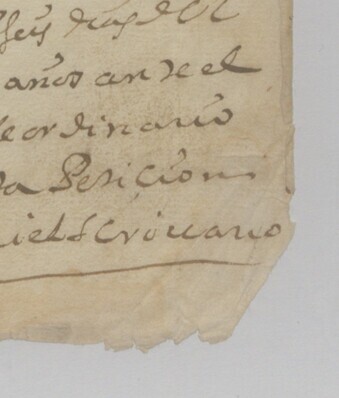 seis dias del
años ante el
e ordinario
da Peticion
iel scriuano